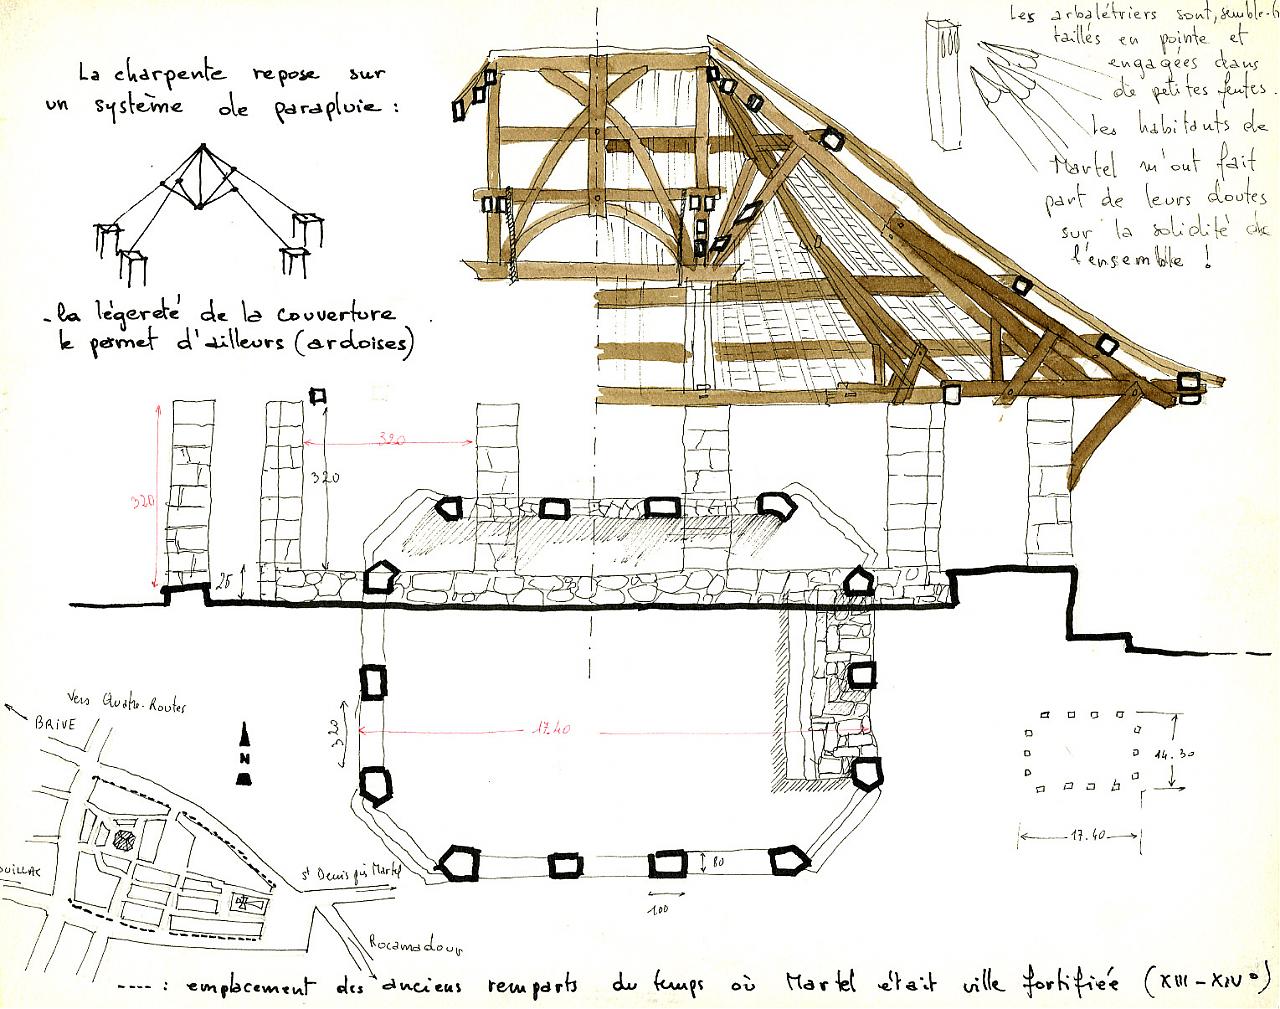 La charpente repose sur
un système de parapluie :
- la légereté de la couverture
le permet d'ailleurs (ardoises)
Les arbalétriers sont, semble-t-
taillés en pointe et
engagées dans
de petites fentes.
Les habitants de
Martel m'ont fait
part de leurs doutes
sur la solidité de
l'ensemble !
320
320
320
25
17.40
320
80
100
14.30
17.40
Vers Quatre-Routes
BRIVE
N
OUILLAC
St Denis près Martel
Rocamadour
---- : emplacement des anciens remparts du temps où Martel était ville fortifiée (XIII - XIV°)